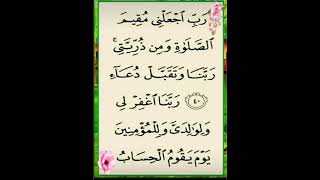 رَبِّ ٱجْعَلْنِى مُقِيمَ
ٱلصَّلَوٰةِ وَمِن ذُرِّيَّتِى ۚ
رَبَّنَا وَتَقَبَّلْ دُعَآءِ
﴿٤٠﴾ رَبَّنَا ٱغْفِرْ لِى
وَلِوَٰلِدَىَّ وَلِلْمُؤْمِنِينَ
يَوْمَ يَقُومُ ٱلْحِسَابُ